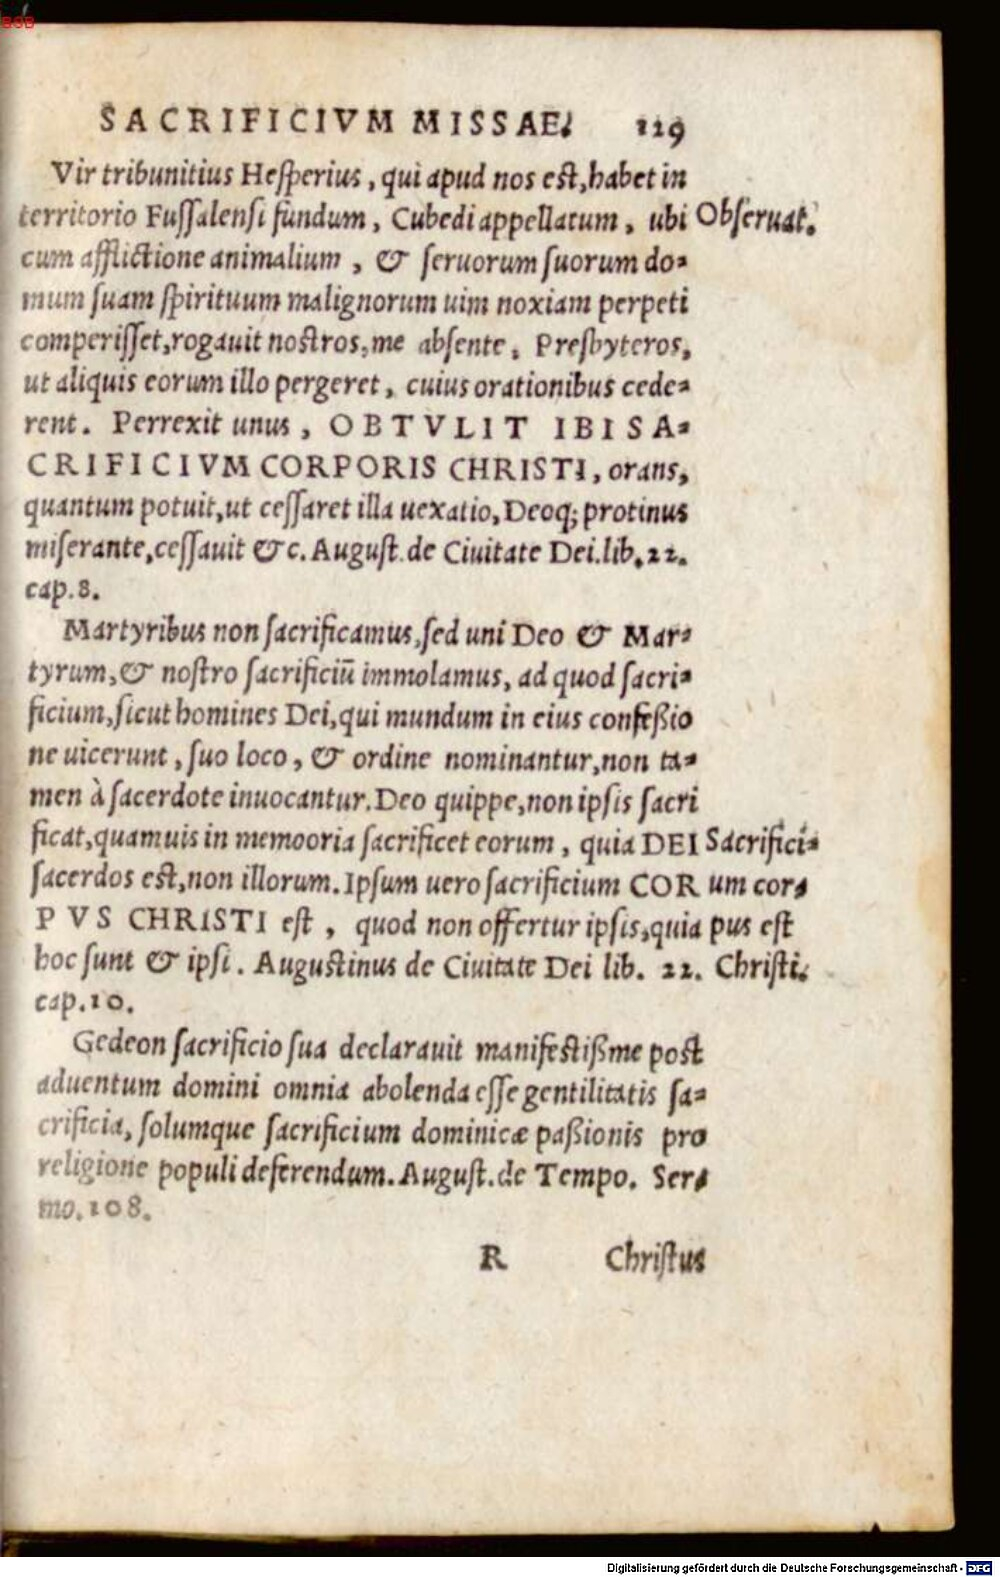 SACRIFICIVM MISSAE. 129
Vir tribunitius Hesperius, qui apud nos est, habet in
territorio Fussalensi fundum, Cubedi appellatum, ubi
Obseruat.
cum afflictione animalium, & seruorum suorum do-
mum suam spirituum malignorum uim noxiam perpeti
comperisset, rogauit nostros, me absente, Presbyteros,
ut aliquis eorum illo pergeret, cuius orationibus cede-
rent. Perrexit unus, OBTVLIT IBI SA-
CRIFICIVM CORPORIS CHRISTI, orans,
quantum potuit, ut cessaret illa uexatio, Deoq; protinus
miserante, cessauit &c. August. de Ciuitate Dei. lib. 22.
cap. 8.
Martyribus non sacrificamus, sed uni Deo & Mar-
tyrum, & nostro sacrificiū immolamus, ad quod sacri-
ficium, sicut homines Dei, qui mundum in eius confeßio
ne uicerunt, suo loco, & ordine nominantur, non ta-
men à sacerdote inuocantur. Deo quippe, non ipsis sacri
ficat, quamuis in memooria sacrificet eorum, quia DEI
sacerdos est, non illorum. Ipsum uero sacrificium COR
PVS CHRISTI est, quod non offertur ipsis, quia
hoc sunt & ipsi. Augustinus de Ciuitate Dei lib. 22.
cap. 10.
Sacrifici-
um cor-
pus est
Christi.
Gedeon sacrificio sua declarauit manifestißme post
aduentum domini omnia abolenda esse gentilitatis sa-
crificia, solumque sacrificium dominicæ paßionis pro
religione populi deferendum. August. de Tempo. Ser-
mo. 108.
R Christus
Digitalisierung gefördert durch die Deutsche Forschungsgemeinschaft - DFG